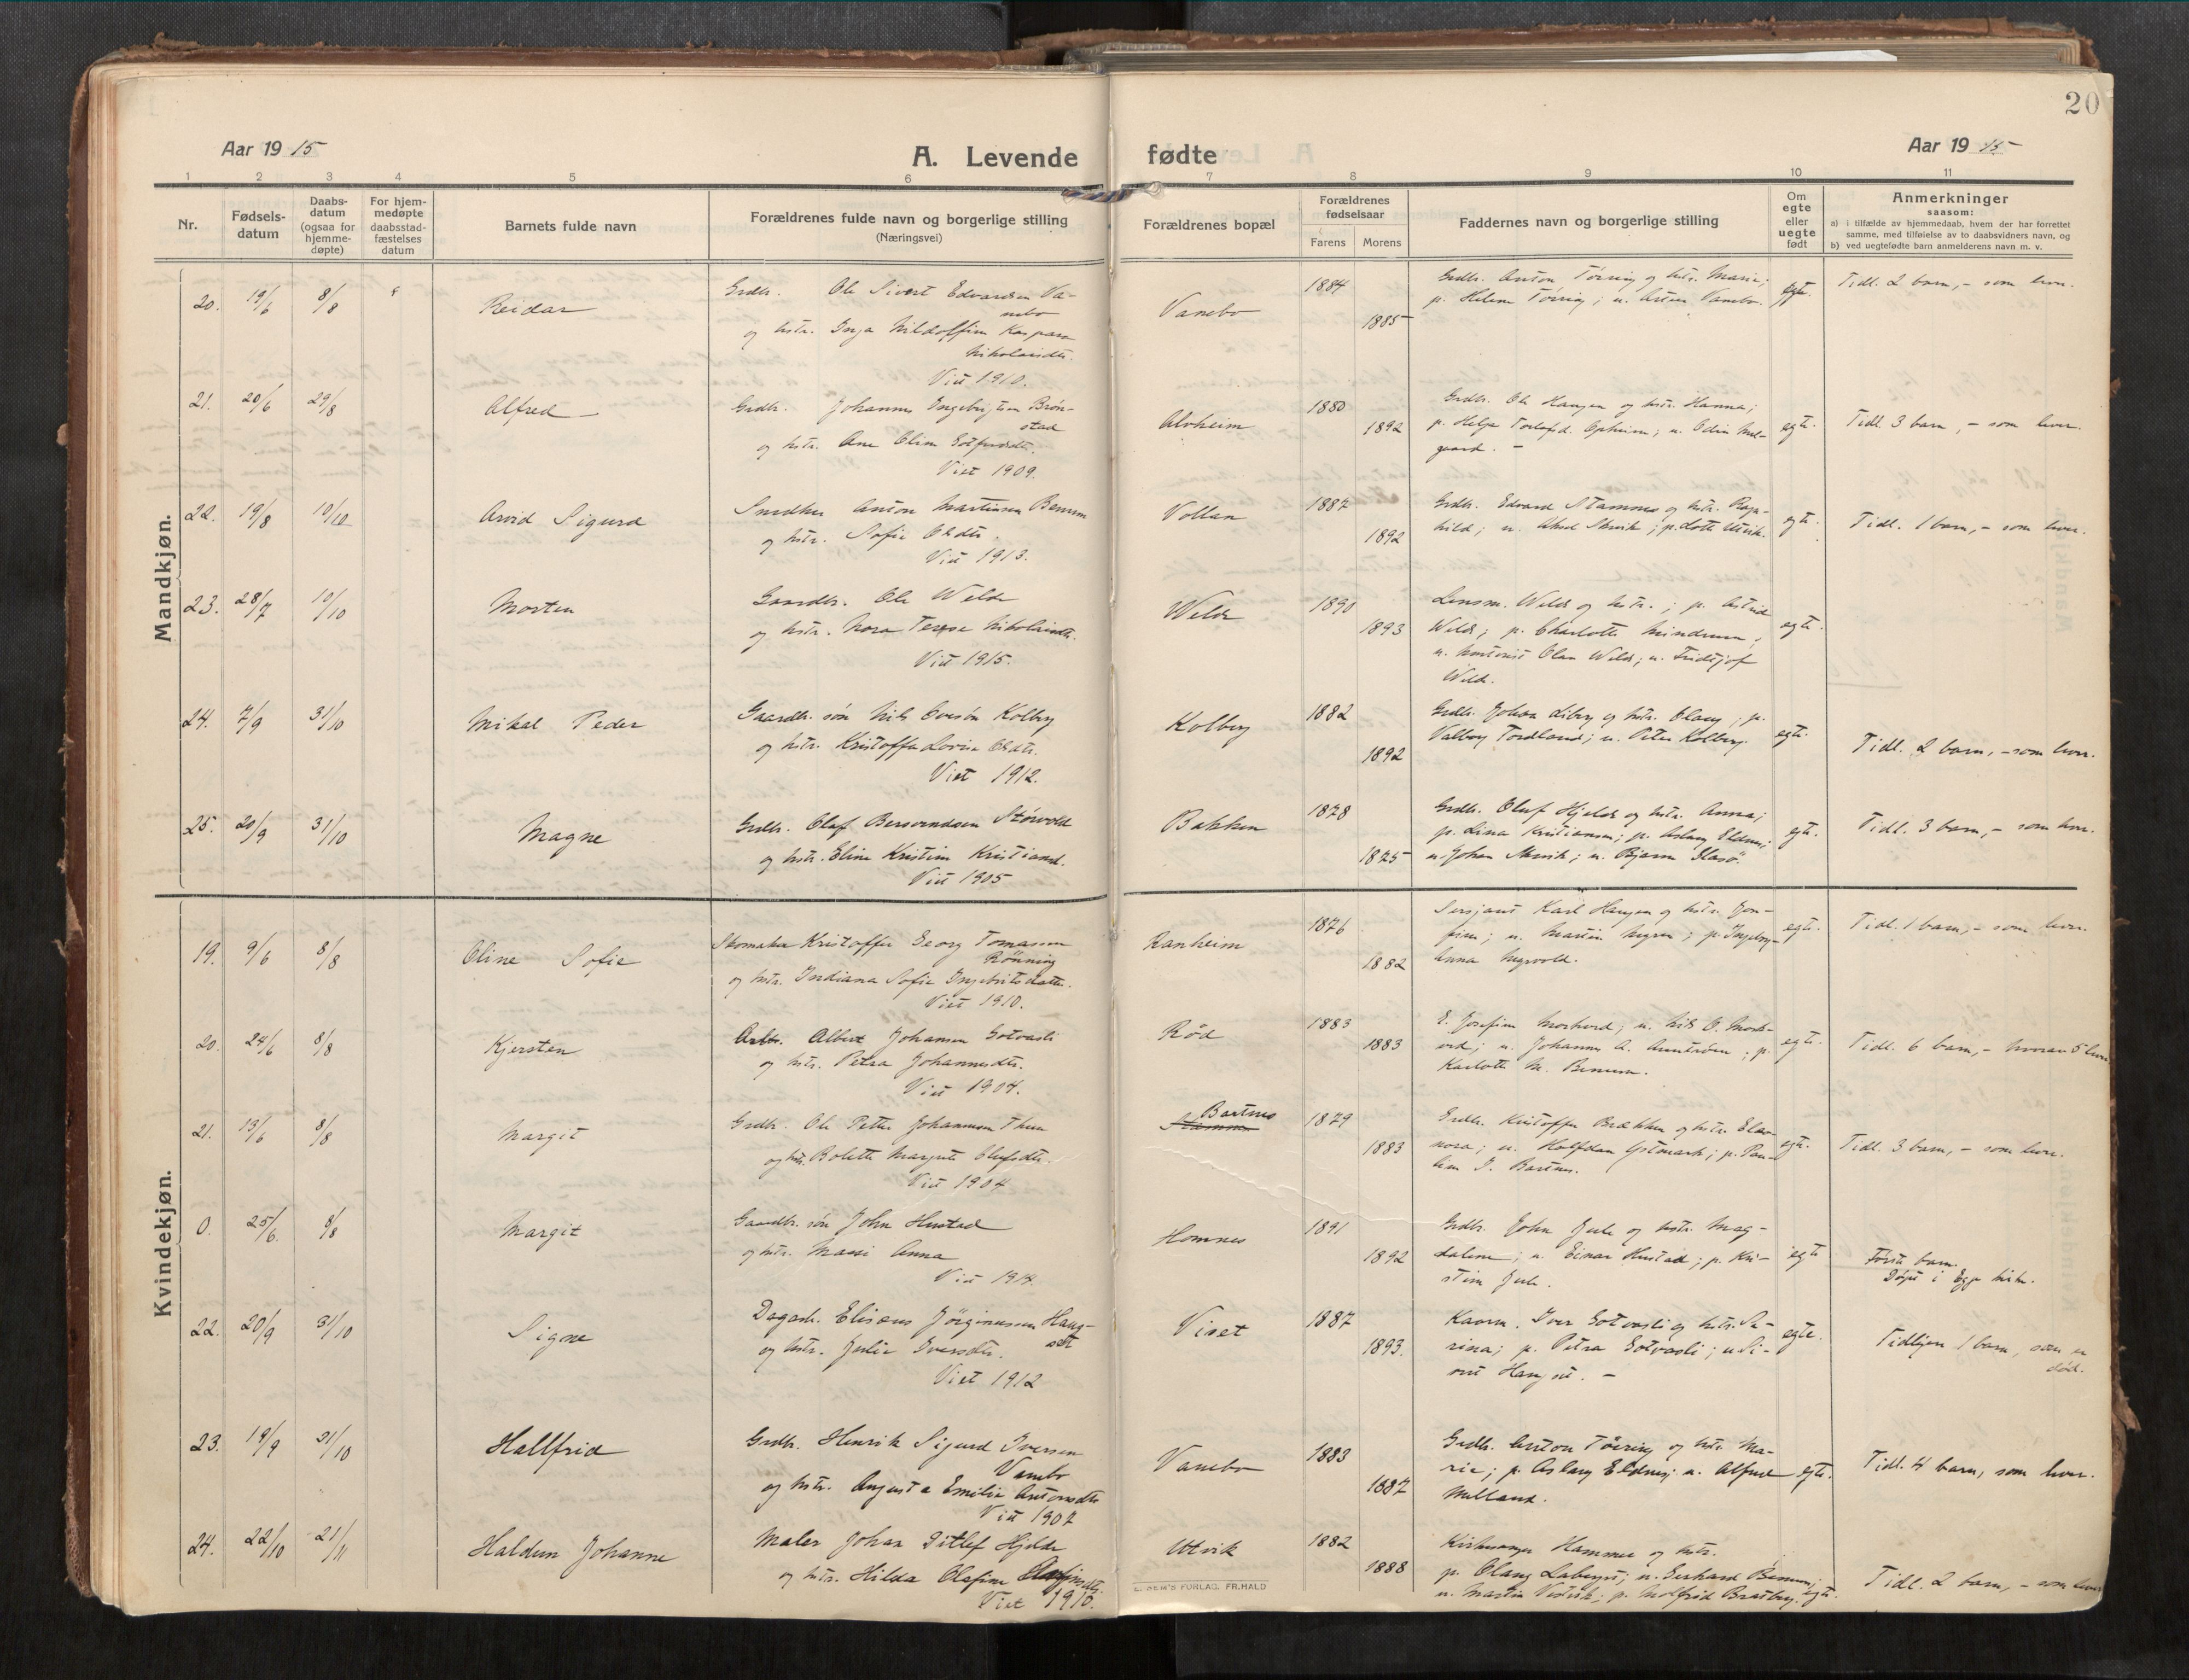 20
Aar 19 15
A. Levende
fødte
Aar 19 15
1 2 3 4 5 6 7 8 9 10 11
Nr.
Fødsels-
datum
Daabs-
datum
(ogsaa for
hjemme-
døpte)
For hjem-
medøpte
daabsstad-
fæstelses
datum
Barnets fulde navn
Forældrenes fulde navn og borgerlige stilling
(Næringsvei)
Forældrenes bopæl
Forældrenes
fødselsaar
Farens Morens
Faddernes navn og borgerlige stilling
Om
egte
eller
uegte
født
Anmerkninger
saasom:
a) i tilfælde av hjemmedaab, hvem der har forrettet
samme, med tilføielse av to daabsvidners navn, og
b) ved uegtefødte barn anmelderens navn m. v.
Mandkjøn.
20. 19/6 8/8 Reidar
Grdbr. Ole Sivert Edvardsen Va-
nebo
og hstr. Inga Hildolfine Kaspara
Nikolaisdtr.
Viet 1910.
Vanebo 1884 1885
Grdbr. Anton Tøring og hstr. Marie;
p. Helene Tøring; u. Vanebo.
egte. Tidl. 2 barn, - som lever.
21. 20/6 29/8 Alfred
Grdbr. Johannes Ingebrigtsen Brøn-
stad
og hstr. Ane Oline
Viet 1909.
Alvheim 1880 1892
Grdbr. Ole Haugen og hstr. Hanna;
p. Helga Opheim; u. Odin Mel-
gaard. -
egte. Tidl. 3 barn, - som lever.
22. 19/8 10/10 Arvid Sigurd
Snedker Anton Martinsen Benum
og hstr. Sofie Olsdtr.
Viet 1913.
Vollan 1887 1892
Grdbr. Edvard Stamnes og hstr. Ragn-
hild; u. ; p. Lotte Utvik.
egte. Tidl. 1 barn, - som lever.
23. 28/7 10/10 Morten
Gaardbr. Ole Welde
og hstr. Nora Terese Nikolaisdtr.
Viet 1915.
Welde 1890 1893
Lensm. Welde og hstr.; p. Astrid
Welde; p. Charlotte Mindrum;
u. Olav Welde; u. Fridtjof
Welde.
egte.
24. 7/9 31/10 Mikal Peder
Gaardbr. søn Nils Ovesøn Kolberg
og hstr. Kristoffa Lovise Olsdtr.
Viet 1912.
Kolberg 1882 1892
Grdbr. Johan Liberg og hstr. Olaug; p.
Valborg Tordland; u. Peter Kolberg.
egte. Tidl. 2 barn, - som lever.
25. 20/9 31/10 Magne
Grdbr. Olaf Bersvendsen Størvold
og hstr. Eline Kristine Kristiansd.
Viet 1905
Bakken 1878 1875
Grdbr. Oluf Hjelde og hstr. Anna;
p. Lina Kristiansen; p. Aslaug Eldnes;
u. Johan ; u. Bjarne Glasø.
egte. Tidl. 3 barn, - som lever.
Kvindekjøn.
19. 9/6 8/8 Oline Sofie
Skomaker Kristoffer Georg Tomassen
Rønning
og hstr. Indiana Sofie Ingebrigtsdatter.
Viet 1910.
Ranheim 1876 1882
Sersjant Karl Haugen og hstr. Jon-
fine; u. Martin Myren; p. Ingeborg-
Anna Myrvold.
egte. Tidl. 1 barn, - som lever.
20. 24/6 8/8 Kjersten
Arbr. Albert Johansen Gotvasli
og hstr. Petra Johannesdtr.
Viet 1904.
Rød 1883 1883
E. Josefine ; u. Nils O.
; u. Johannes A. ; p.
Karlotte M. Benum.
egte. Tidl. 6 barn, - hvorav 5 lever
21. 13/6 8/8 Margit
Grdbr. Ole Petter Johannesen Thun
og hstr. Bolette Margrete Olufsdtr.
Viet 1904
Bartnes
Stamnes 1879 1883
Grdbr. Kristoffer Brækken og hstr. Eleo-
nora; u. Halfdan Ystmark; p. Pau-
line J. Bartnes.
egte. Tidl. 3 barn, - som lever.
0. 25/6. 8/8 Margit
Gaardbr. søn John Hustad
og hstr. Massi Anna
Viet 1914.
Homnes 1891 1892
Grdbr. John Jule og hstr. Mag-
dalene; u. Einar Hustad; p. Kri-
stine Jule.
egte Første barn.
Døpt i Egge kirke.
22. 20/9 31/10 Signe
Dagarb. Elisæus Jørginussen Haug-
set
og hstr. Julie Iversdtr.
Viet 1912
Viset 1887 1893.
Iver Gotvasli og hstr. Sa-
rina; p. Petra Gotvasli; u. Si-
vert Haugset. -
egte. Tidligere 1 barn, som er
død.
23. 19/9 31/10 Hallfrid
Grdbr. Henrik Sigurd Iversen
Vanebo
og hstr. Augusta Emilie Antonsdtr
Viet 1907
Vanebo 1883 1887
Grdbr. Anton Tøring og hstr. Ma-
rie; p. Aslaug Eldnes; u. Alfred
Melland.
egte. Tidl. 4 barn, som lever.
24. 22/10 21/11 Haldun Johanne
Maler Johan Ditlef Hjelde
og hstr. Hilda Olefine
Viet 1910.
Utvik 1882 1888
Kirkesanger Hammer og hstr.
p. Olaug ; u. Gerhard Benum;
u. Martin ; p. Bratberg.
egte. Tidl. 2 barn, - som lever
FORLAG, FR.HALD